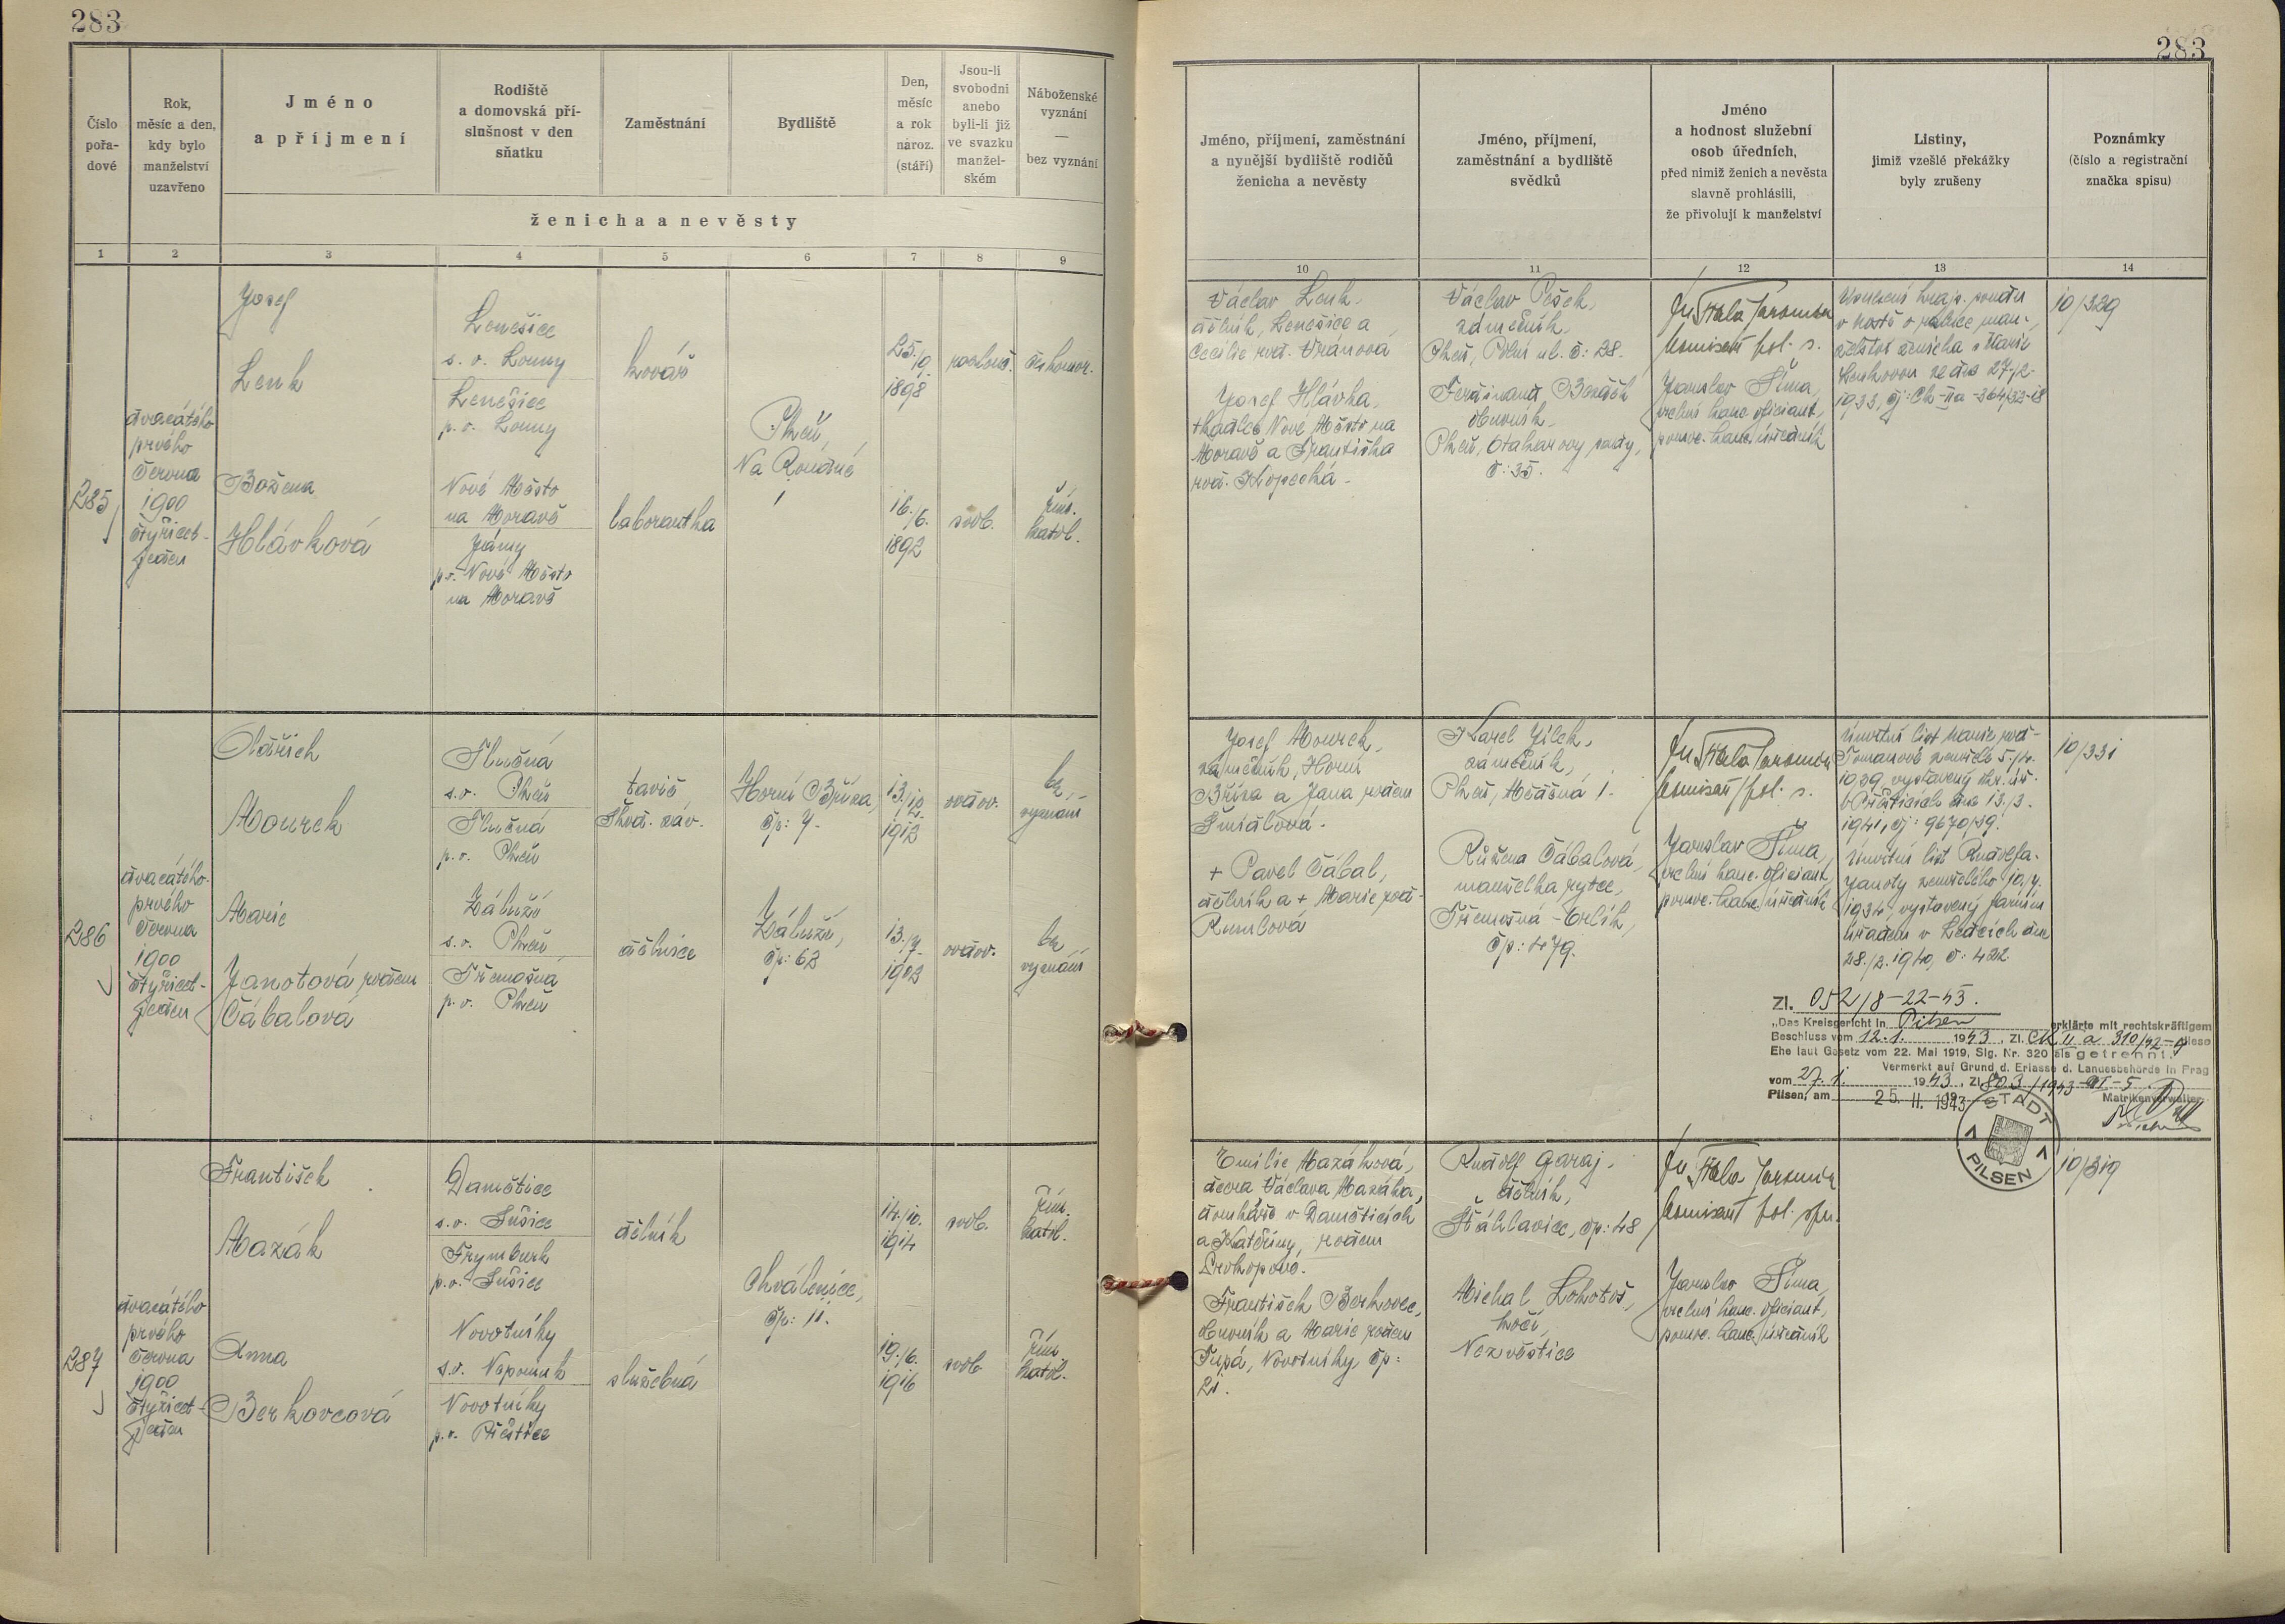 283
283
Číslo
pořa-
dové
Rok,
měsíc a den,
kdy bylo
manželství
uzavřeno
Jméno
a příjmení
Rodiště
a domovská pří-
slušnost v den
sňatku
Zaměstnání
Bydliště
Den,
měsíc
a rok
naroz.
(stáří)
Jsou-li
svobodni
anebo
byli-li již
ve svazku
manžel-
ském
Náboženské
vyznání
—
bez vyznání
ženicha a nevěsty
1 2 3 4 5 6 7 8 9
Jméno, příjmení, zaměstnání
a nynější bydliště rodičů
ženicha a nevěsty
Jméno, příjmení,
zaměstnání a bydliště
svědků
Jméno
a hodnost služební
osob úředních,
před nimiž ženich a nevěsta
slavně prohlásili,
že přivolují k manželství
Listiny,
jimiž vzešlé překážky
byly zrušeny
Poznámky
(číslo a registrační
značka spisu)
10 11 12 13 14
285
dvacátého
prvého
června
1900
čtyřicet-
jeden
Josef
Lenk
Božena
Hlávková
Lenešice
s. o. Louny
Lenešice
p. o. Louny
Nové Město
na Moravě
Jámy
p. o. Nové Město
na Moravě
kovář
laborantka
Plzeň,
Na Roudné
1
25./9.
1898
rozluč.
českomor.
16./6.
1892
svob.
řím.
katol.
Václav Lenk,
dělník, Lenešice a
Cecilie roz. Vránová
Josef Hlávka,
tkadlec Nové Město na
Moravě a Františka
roz. Klopecká.
Václav Pešek,
zámečník,
Plzeň, Polní ul. č: 28.
Ferdinand Beneděk
obuvník,
Plzeň, Otakarovy sady,
č: 35.
Ju Fiala Jaromír
komisař pol. s.
Jaroslav Šíma,
vrchní kanc. oficiant,
pomoc. kanc. úředník
Usnesení kraj. soudu
v Mostě o rozluce man-
želství ženicha s Marií
Lenkovou ze dne 27./2.
1933, čj: Ck-IIa-364/32-18
10/329
286
dvacátého
prvého
června
1900
čtyřicet-
jeden
Oldřich
Mourek
Marie
Janotová rozen
Čábalová
Hlučná
s. o. Plzeň
Hlučná
p. o. Plzeň
Záluží
s. o. Plzeň
Třemošná
p. o. Plzeň
tavič
Škod. záv.
dělnice
Horní Bříza,
čp: 7.
Záluží,
čp: 62
13./12.
1912
ovdov.
bez
vyznání
13./7.
1903
ovdov.
bez
vyznání
Josef Mourek,
zámečník, Horní
Bříza a Jana rozen
Šmídlová.
+ Pavel Čábal,
dělník a + Marie roz.
Rumlová
Karel Jílek,
zámečník,
Plzeň, Mežná 1.
Růžena Čábalová,
manželka rytce,
Třemošná - Orlík,
čp: 479.
Ju Fiala Jaromír
komisař pol. s.
Jaroslav Šíma,
vrchní kanc. oficiant,
pomoc. kanc. úředník
Úmrtní list Marie roz.
Tomanové zemřelé 5./4.
1939, vystavený
dne 13./3.
1941, čj: 9670/39.
Úmrtní list Rudolfa
Janoty zemřelého 10./7.
1934, vystavený farním
úřadem v Ledcích dne
28./2. 1940, č: 422.
10/331
Zl. 052/8-22-43.
„Das Kreisgericht in Pilsen erklärte mit rechtskräftigem
Beschluss vom 12.1. 1943, Zl. Ck II a 310/42-9 diese
Ehe laut Gesetz vom 22. Mai 1919, Slg. Nr. 320 als getrennt.“
Vermerkt auf Grund d. Erlasse d. Landesbehörde in Prag
vom 27.1. 1943, Zl 803/1943-VI-5
Pilsen, am 25. II. 1943
Matrikenverwalter
STADT
PILSEN
287
dvacátého
prvého
června
1900
čtyřicet-
jeden
František
Mazák
Anna
Berkovcová
Damětice
s. o. Sušice
Frymburk
p. o. Sušice
Novotníky
s. o. Nepomuk
Novotníky
p. o. Přeštice
dělník
služebná
Chválenice,
čp: 11.
14./10.
1914
svob.
řím.
katol.
19./6.
1916
svob.
řím.
katol.
Emilie Mazáková,
dcera Václava Mazáka,
domkáře v Daměticích
a Kateřiny, rozen
Prokopové.
František Berkovec,
obuvník a Marie rozen
Tupá, Novotníky čp:
21.
Rudolf Garaj,
dělník,
Šťáhlavice, čp: 48
Michal Lokotoš,
kočí,
Nezvěstice
Ju Fiala Jaromír
komisař pol. spr.
Jaroslav Šíma,
vrchní kanc. oficiant,
pomoc. kanc. úředník
10/319